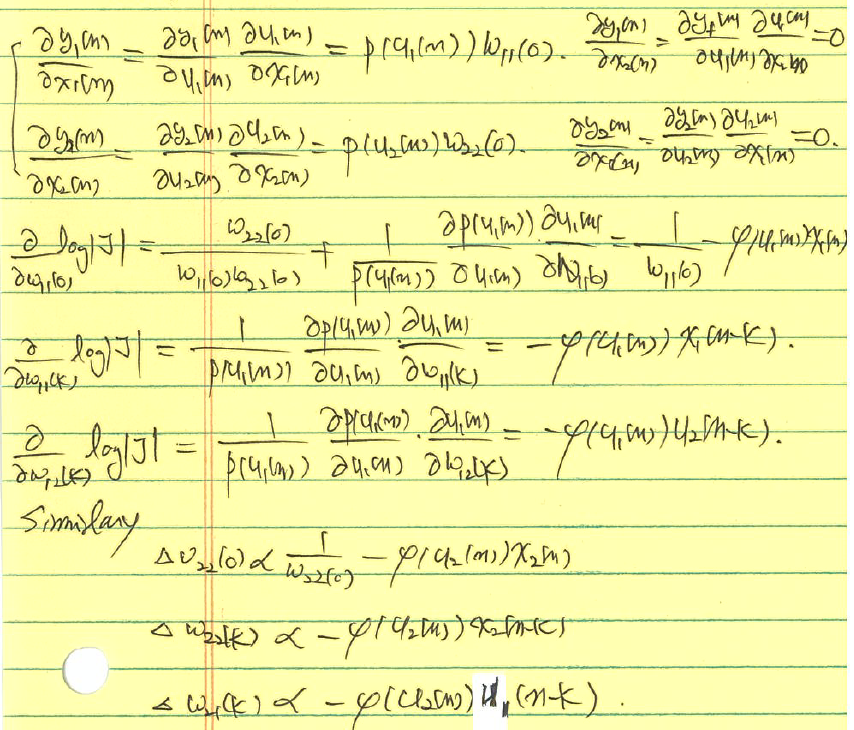 ∂y₁(n)/∂x₁(n) = ∂y₁(n)/∂u₁(n) ∂u₁(n)/∂x₁(n) = p(u₁(n)) w₁₁(0). ∂y₁(n)/∂x₂(n) = ∂y₁(n)/∂u₁(n) ∂u₁(n)/∂x₂(n) = 0
∂y₂(n)/∂x₂(n) = ∂y₂(n)/∂u₂(n) ∂u₂(n)/∂x₂(n) = p(u₂(n)) w₂₂(0). ∂y₂(n)/∂x₁(n) = ∂y₂(n)/∂u₂(n) ∂u₂(n)/∂x₁(n) = 0.
∂/∂w₁₁(0) log|J| = w₂₂(0)/w₁₁(0)w₂₂(0) + 1/p(u₁(n)) ∂p(u₁(n))/∂u₁(n) · ∂u₁(n)/∂w₁₁(0) = 1/w₁₁(0) - φ(u₁(n))x₁(n)
∂/∂w₁₁(k) log|J| = 1/p(u₁(n)) ∂p(u₁(n))/∂u₁(n) ∂u₁(n)/∂w₁₁(k) = -φ(u₁(n)) x₁(n-k).
∂/∂w₁₂(k) log|J| = 1/p(u₁(n)) ∂p(u₁(n))/∂u₁(n) · ∂u₁(n)/∂w₁₂(k) = -φ(u₁(n)) u₂(n-k).
Similary
Δw₂₂(0) ∝ 1/w₂₂(0) - φ(u₂(n)) x₂(n)
Δw₂₂(k) ∝ -φ(u₂(n)) x₂(n-k)
Δw₂₁(k) ∝ -φ(u₂(n)) u₁(n-k).